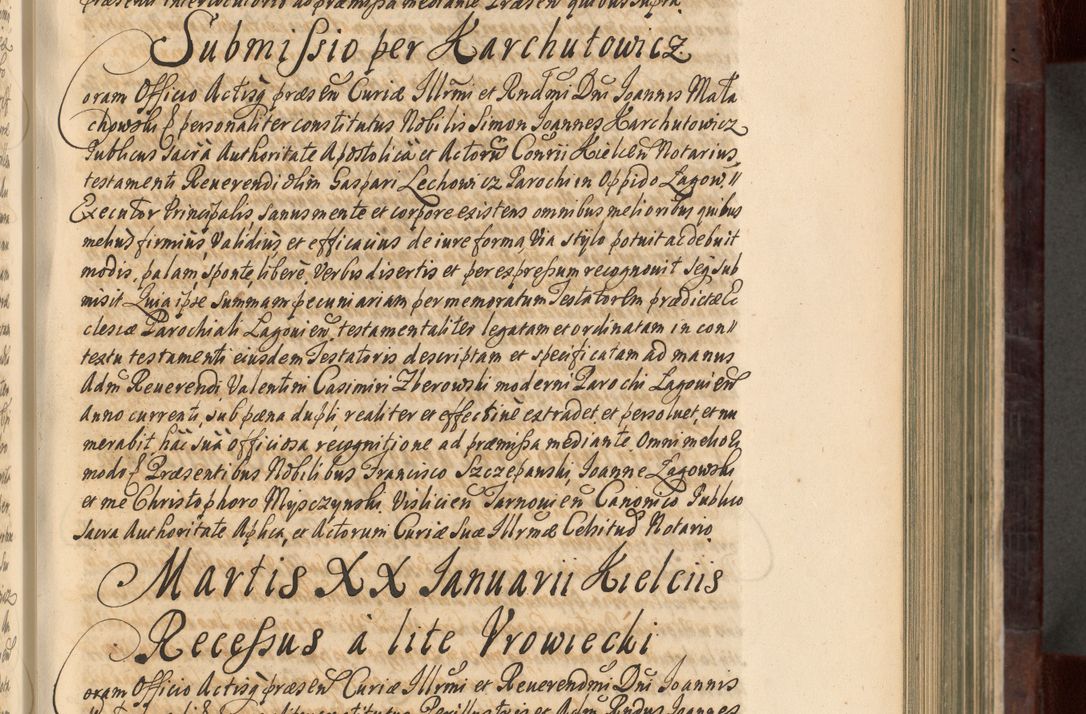 præsenti interlocutorio ad præmissa mediante Præsen quibus supra.
Submissio per Harchutowicz
Coram Officio Actisq præsen Curiæ Illrmi et Rndmi Dni Joannis Mała
chowski &c personaliter constitutus Nobilis Simon Joannes Harchutowicz
Publicus Sacra Authoritate Apostolica et Actoru Consrii Kielcen Notarius
testamenti Reuerendi olim Gaspari Lechowicz Parochi in Oppido Lagow //
Executor Principalis, sanus mente et corpore existens omnibus melioribus quibus
melius firmius, Validius et efficacius de iure forma Via stylo potuit ac debuit
modis, palam, sponte, libere Verbis disertis et per expressum recognouit seq sub
misit Quia ipse Summam pecuniariam per memoratum Testatorem prædictæ Ec
clesiæ Parochiali Lagouien testamentaliter legatam et ordinatam in con //
textu testamenti eiusdem Testatoris descriptam et specificatam ad manus
Adm Reuerendi Valentini Casimiri Zberowski moderni Parochi Lagouien
Anno currenti, sub pæna dupli, realiter et effectiue extradet et persoluet, et nu
merabit hac sua officiosa recognitione ad præmissa mediante Omni meliori
modo &c Præsentibus Nobilibus Francisco Szczepanski, Joanne Lagowski
et me Christophoro Mypczynski Vislicien Tarnouien Canonico Publico
Sacra Authoritate Aplica, et Actorum Curiæ Suæ Illrmæ Celsitud Notario
Martis XX Januarii Kielciis
Recessus à lite Vrowiecki
Coram Officio Actisq præsen Curiæ Illrmi et Reuerendmi Dni Joannis